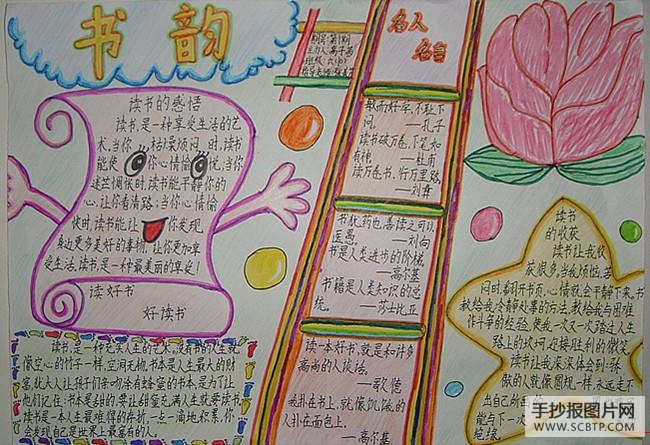 书韵
名人
名言
读书的感悟
读书,是一种享受生活的艺
术。当你枯燥烦闷时,读书
能使你心情愉悦,当你
迷茫惆怅时,读书能平静你的
心,让你看清路;当你心情愉
快时,读书能让你发现
身边更多美好的事物,让你更加享
受生活。读书,是一种最美丽的享受!
读好书
好读书
敏而好学,不耻下
问。 —孔子
读书破万卷,下笔如
有神。 —杜甫
读万卷书,行万里路。
—刘彝
书犹药也,善读之可以
医愚。 —刘向
书是人类进步的阶梯。
—高尔基
书籍是人类知识的总
统。 —莎士比亚
读一本好书,就是和许多
高尚的人谈话。
—歌德
我扑在书上,就像饥饿的
人扑在面包上。
—高尔基
读书
的收获
读书让我收
获很多,当我烦恼、苦
闷时,翻开书页,心情就会平静下来,书
教给我冷静处事的方法,教给我与困难
作斗争的经验,使我一次又一次踏过人生
路上的坎坷,迎接胜利的微笑。
读书让我深深体会到:骄
傲的人就像圆规一样,永远走不
出自己的
能与下一
媲美。
读书,是一种充实人生的艺术。没有书的人生就
像空心的竹子一样,空洞无物。书本是人生最大的财
富。犹太人让孩子们亲吻涂有蜂蜜的书本,是为了让
他们记住:书本是甜的,要让甜蜜充满人生就要读书。
读书是一本人生最难得的存折,一点一滴地积累,你
会发现自己是世界上最富有的人。
手抄报图片网
WWW.SCBTP.COM